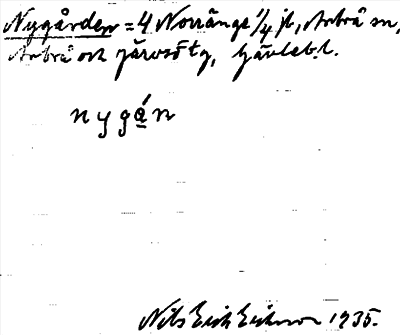 Nygården = 4 Norränge 1/4 jb, Arbrå sn,
Arbrå och Järvsö tg, Gävleb. l.
nygá̱n
Nils Erik Eriksson 1935.